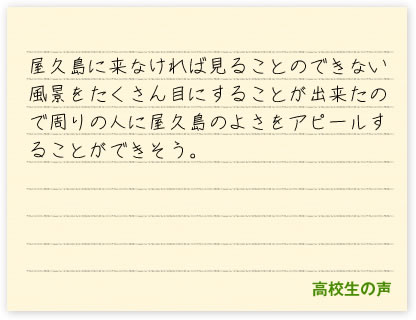 屋久島に来なければ見ることのできない
風景をたくさん目にすることが出来たの
で周りの人に屋久島のよさをアピールす
ることができそう。
高校生の声